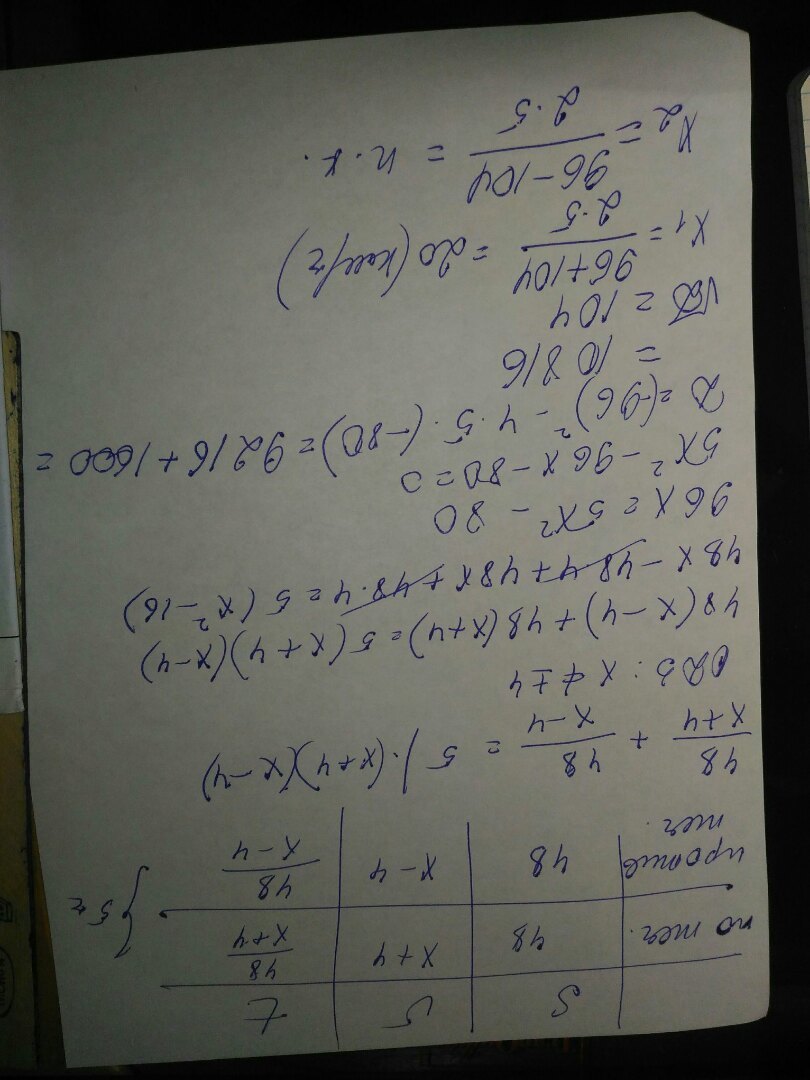 S V t
по теч. 48 x+4 48/(x+4)
против теч. 48 x-4 48/(x-4) } 5 ч
48/(x+4) + 48/(x-4) = 5 |·(x+4)(x-4)
ОДЗ: x ≠ ±4
48(x-4)+48(x+4)=5(x+4)(x-4)
48x-48·4+48x+48·4=5(x²-16)
96x=5x²-80
5x²-96x-80=0
D=(-96)²-4·5·(-80)=9216+1600=
=10816
√D=104
x₁=(96+104)/(2·5)=20(км/ч)
x₂=(96-104)/(2·5)=п.к.